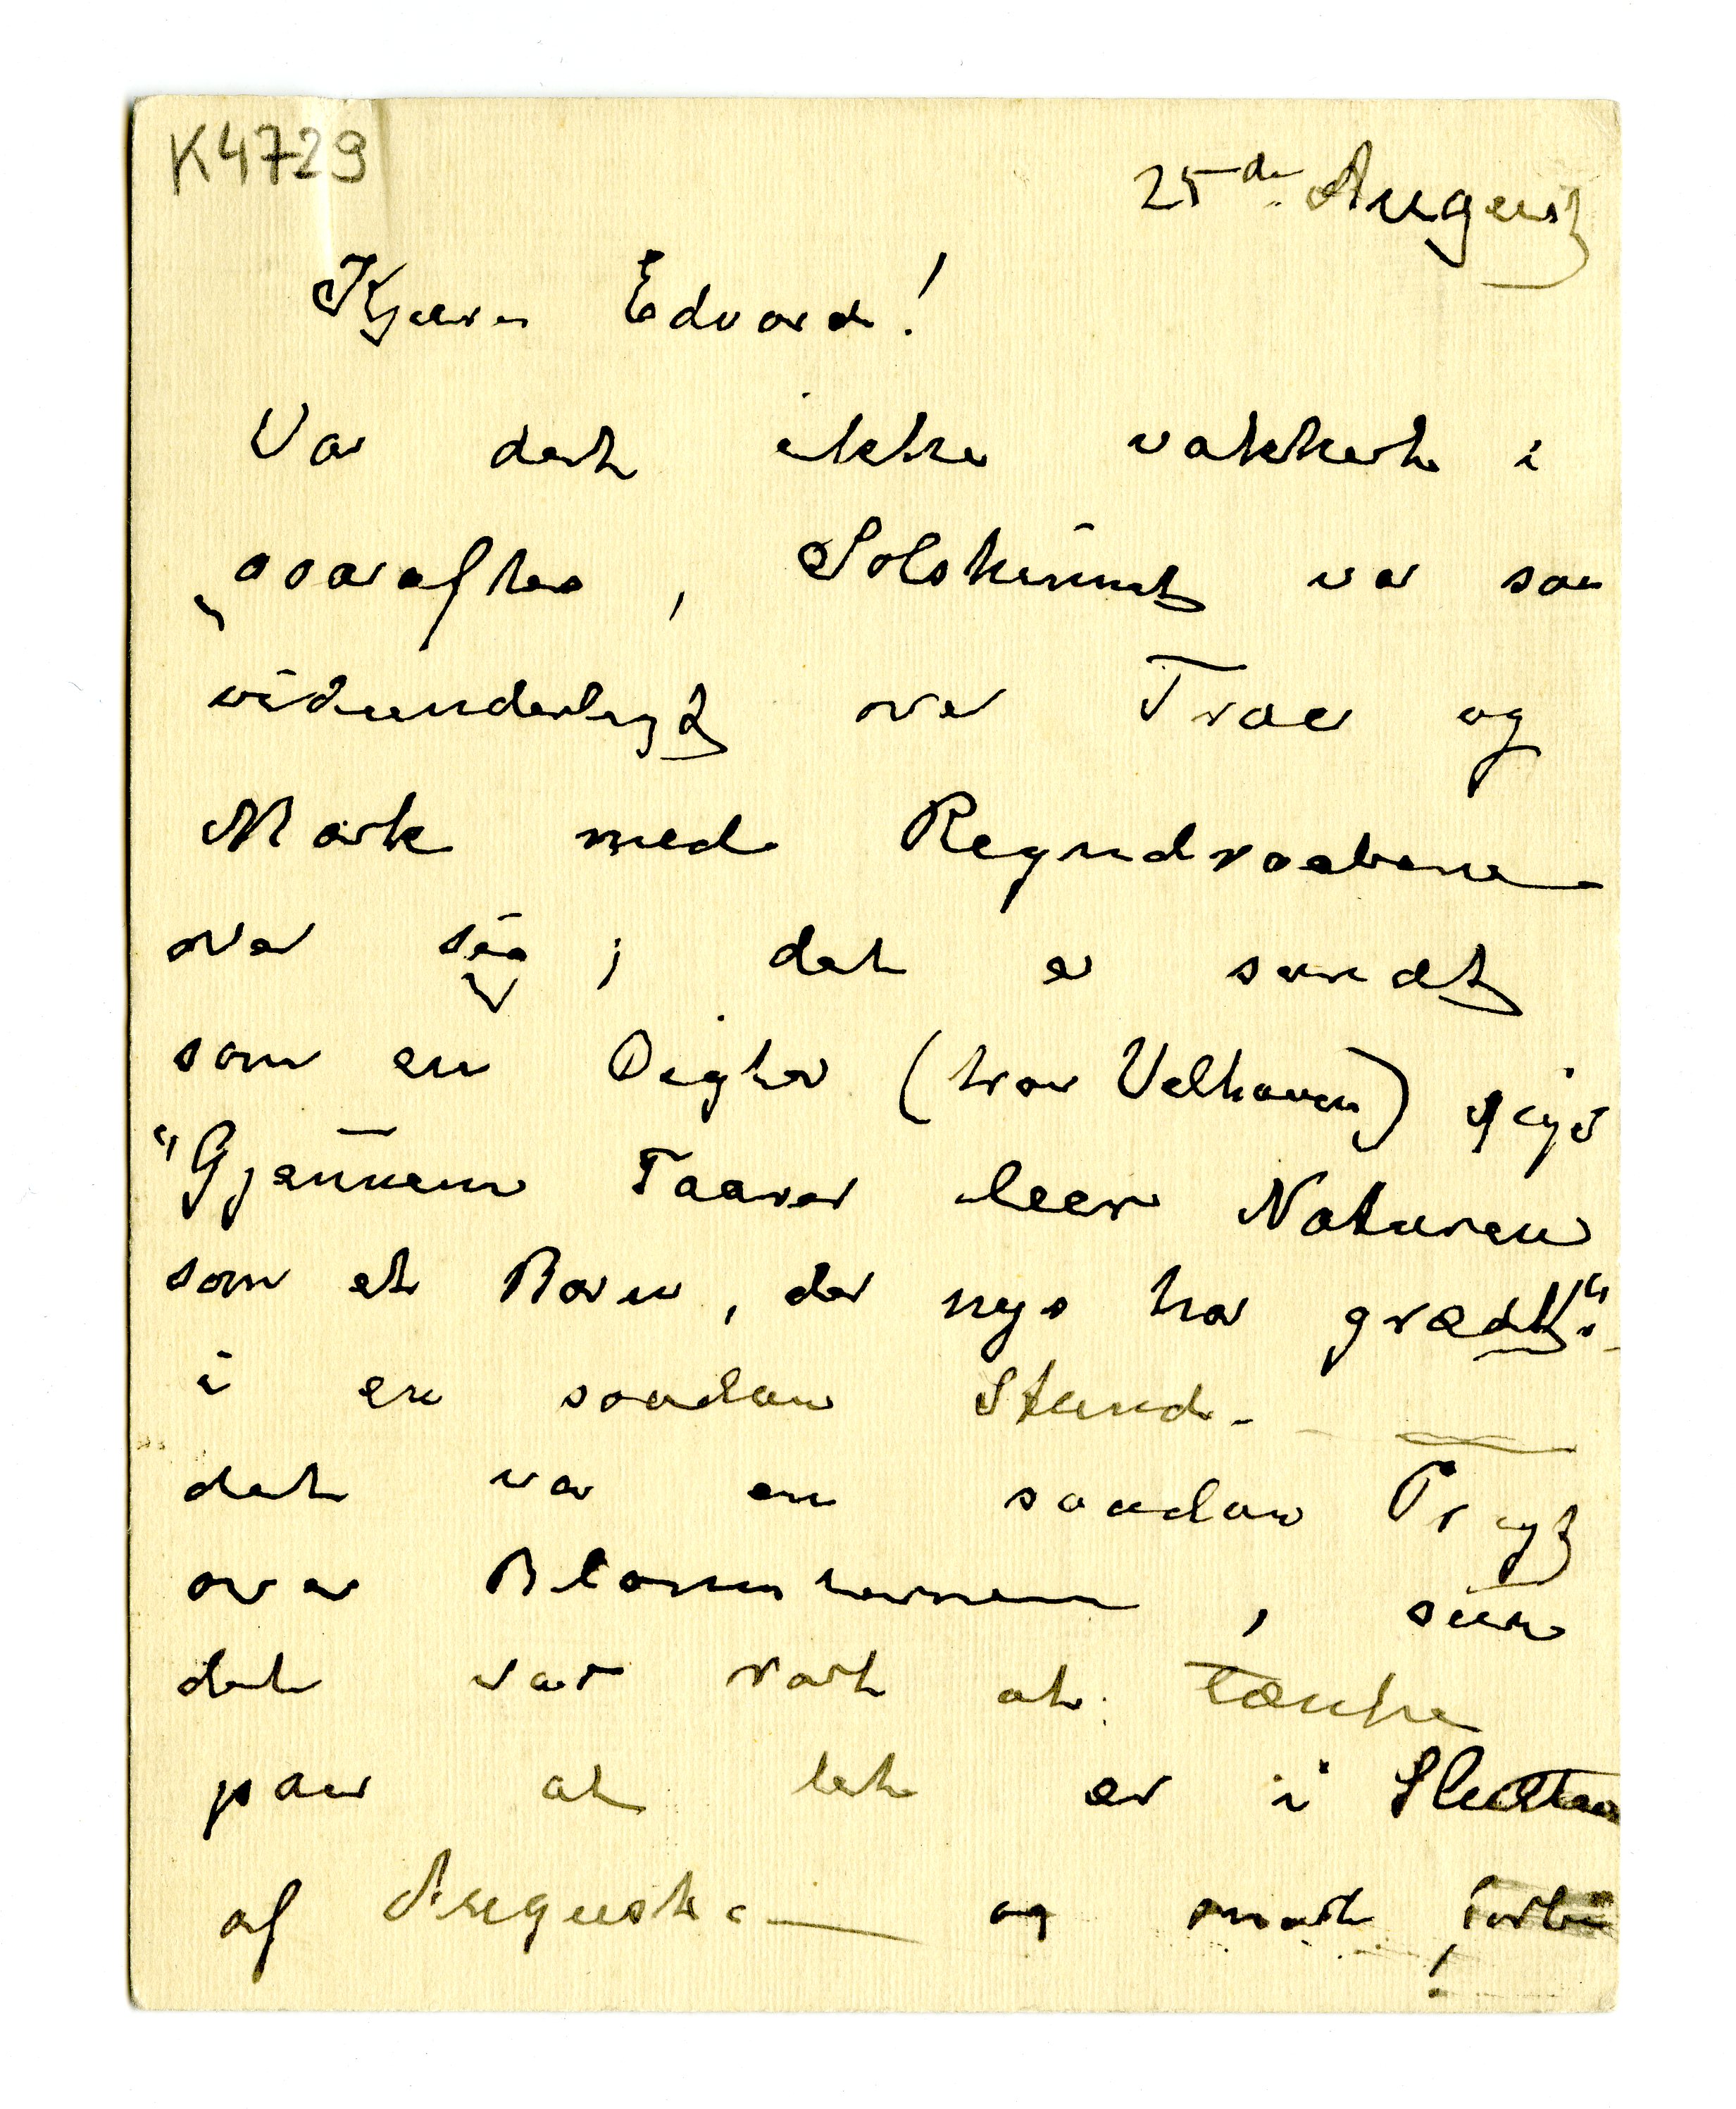 K4729
25de August
Kjære Edvard!
Var det ikke vakkert i
gaaraftes, Solskinnet var saa
vidunderligt over Træer og
Mark med Regndraabene
over sig; det er sandt
som en Digter (tror Velhaven) siger
"Gjennem Taarer leer Naturen
som et Barn, der nys har grædt"
i en saadan Stund.
det var en saadan Pragt
over Blomsterne,
det var rart at tænke
paa at det er i Slutten
af August – og snart forbi